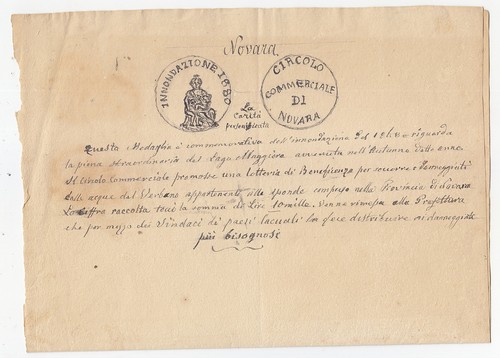 Novara
INNONDAZIONE 1880
CIRCOLO
COMMERCIALE
DI
NOVARA
La
Carità
personificata
Questa Medaglia è commemorativa dell'innondazione del 18 e riguarda
la piena straordinaria del Lago Maggiore avvenuta nell'Autunno dello anno.
Il Circolo Commerciale promosse una lotteria di Beneficenza per i danneggiati
dalle acque del Verbano appartenenti alle sponde comprese nella Provincia di Novara
La cifra raccolta toccò la somma di Lire 10 mille. Venne rimessa alla Prefettura
che per mezzo dei Sindaci de' paesi lacuali la fece distribuire ai danneggiati
più bisognosi